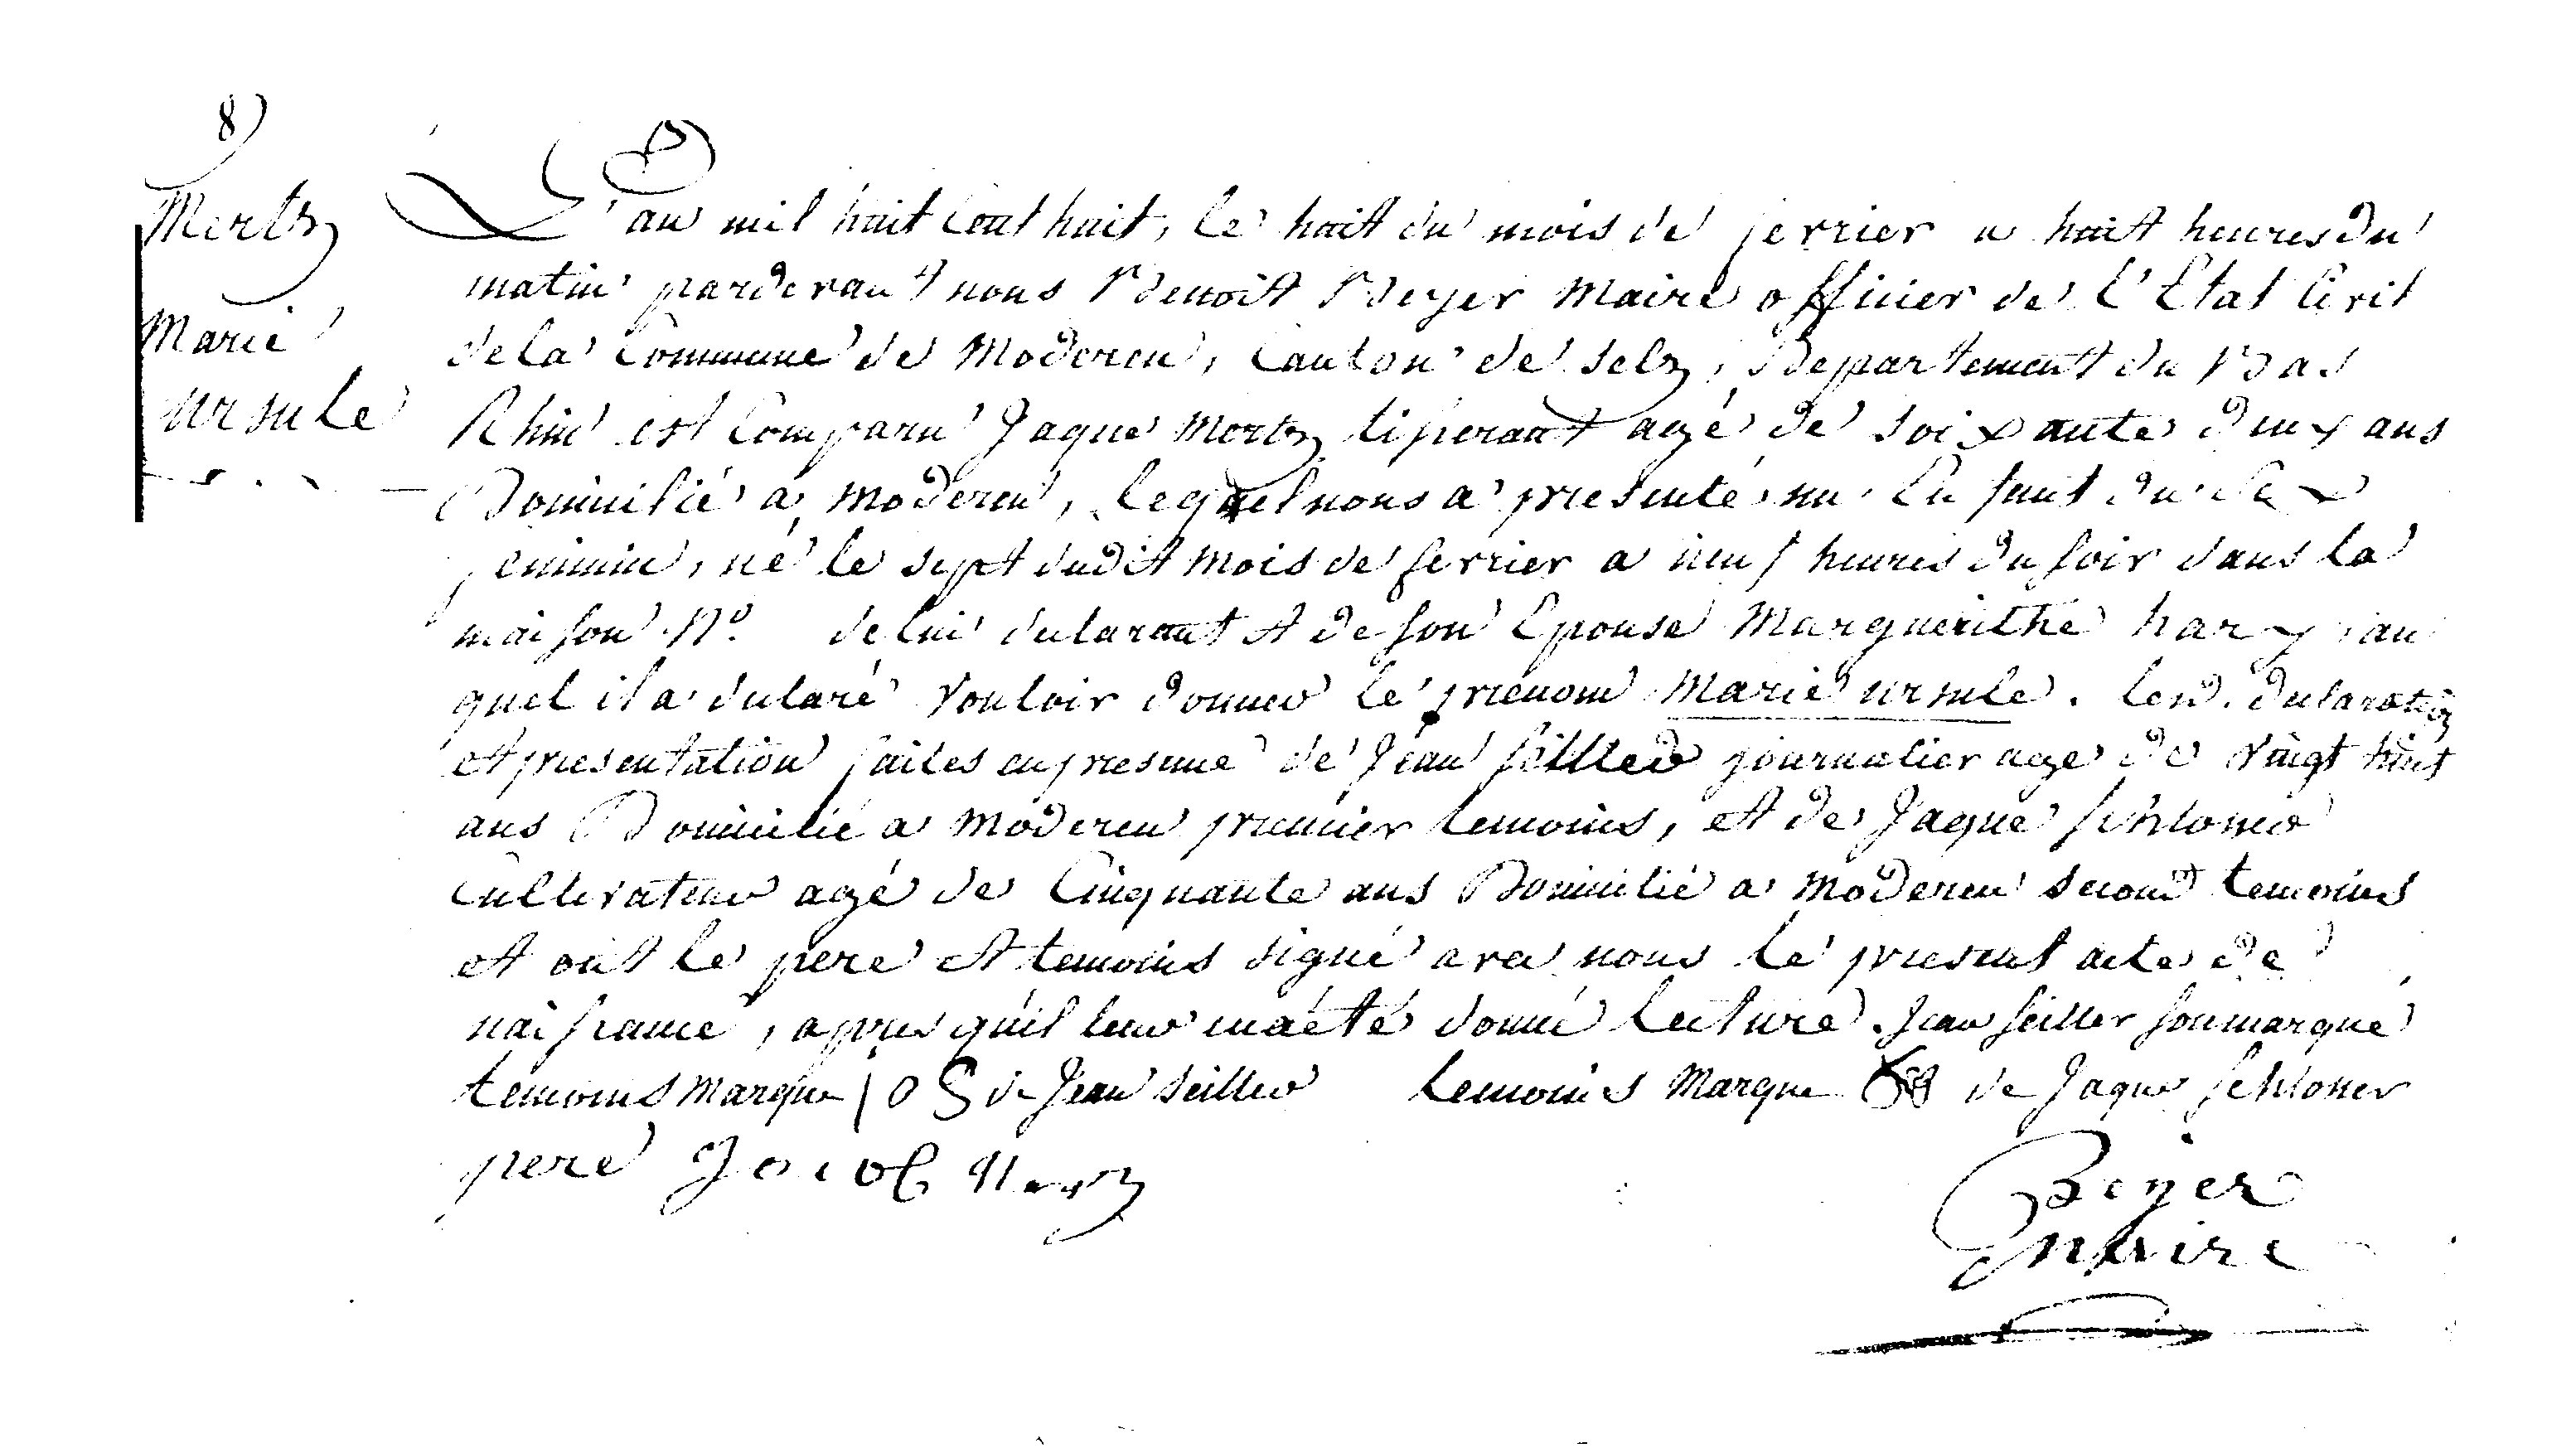 8)
Mertz
Marie
ursule
L'an mil huit Cent huit, le huit du mois de fevrier a huit heures du
matin pardevant nous Benoit Beyer Maire officier de l'Etat Civil
de la Commune de Moderen, Canton de Selz, Departement du Bas
Rhin est Comparu Jaque Mertz tiserant agé de soixante deux ans
Domicilié a Moderen, lequel nous a presenté un Enfant du Sex
feminin, né le sept dudit mois de fevrier a neuf heures du soir dans la
maison N°. de lui declarant et de son Epouse Marguerithe hary au
quel il a declaré vouloir donner le prenom Marie ursule. lesd. declaration
et presentation faites en presence de Jean seiller journalier age de vingt huit
ans Domicilié a Moderen premier temoins, et de Jaque schloner
Cultivateur agé de Cinquante ans Domicilié a Moderen second temoins
et ont le pere et temoins signé avec nous le present acte de
naissance, apres qu'il leur en a été donné lecture. Jean seiller son marque
temoins marque | O S de Jean seiller temoins Marque de Jaque schloner
pere Jacob Mertz
Beyer
Maire